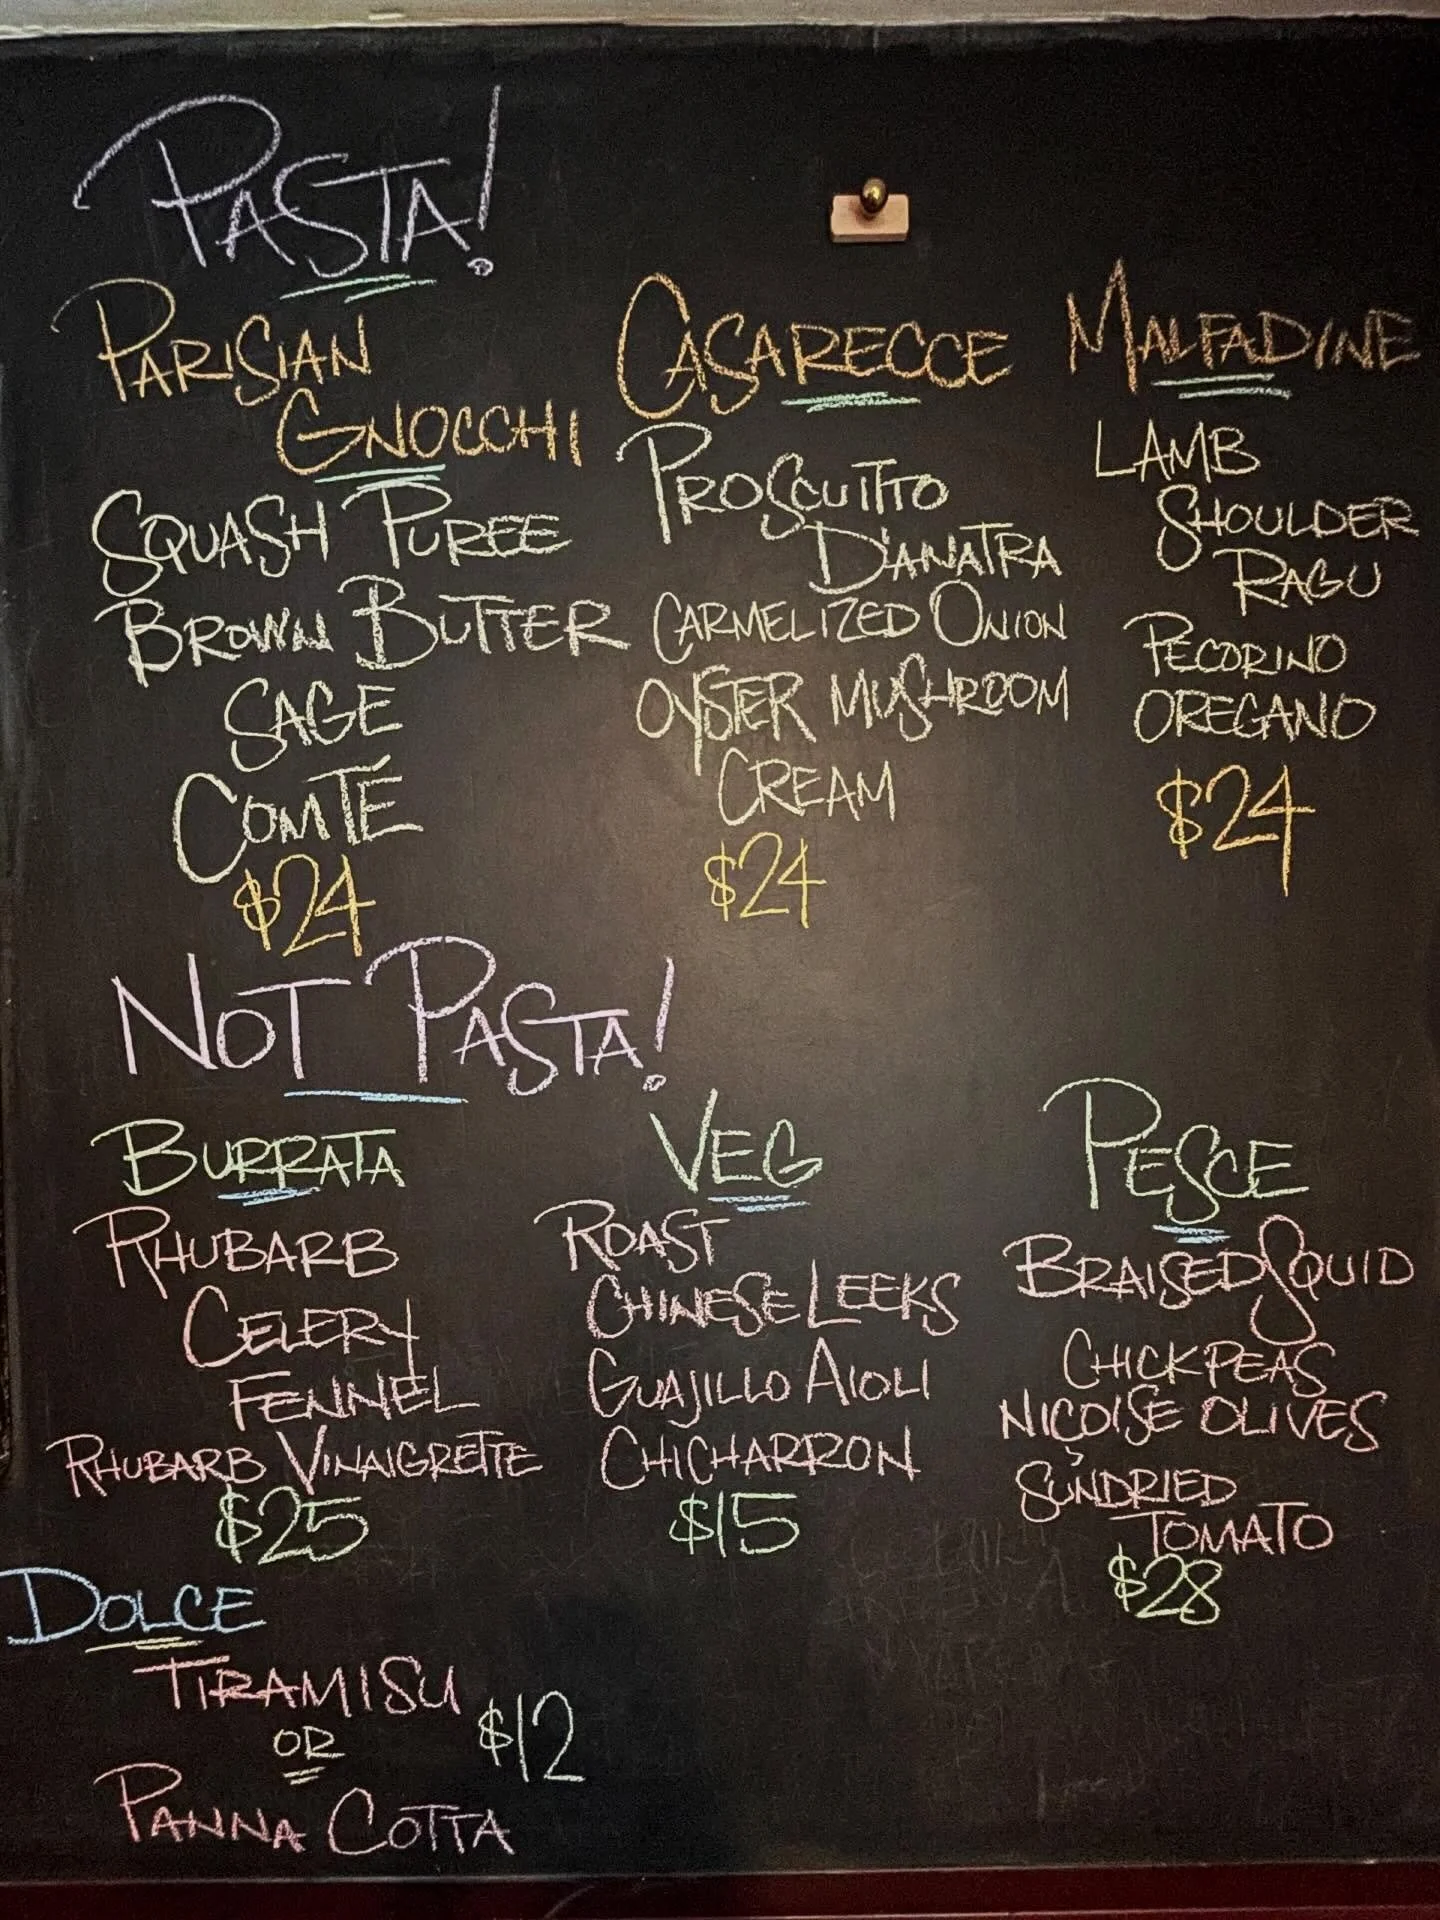 PASTA!
PARISIAN
GNOCCHI
SQUASH PUREE
BROWN BUTTER
SAGE
COMTÉ
$24
CASARECCE
PROSCUITTO
D'ANATRA
CARMELIZED ONION
OYSTER MUSHROOM
CREAM
$24
MALFADINE
LAMB
SHOULDER
RAGU
PECORINO
OREGANO
$24
NOT PASTA!
BURRATA
RHUBARB
CELERY
FENNEL
RHUBARB VINAIGRETTE
$25
VEG
ROAST
CHINESE LEEKS
GUAJILLO AIOLI
CHICHARRON
$15
PESCE
BRAISED SQUID
CHICKPEAS
NIÇOISE OLIVES
SUNDRIED
TOMATO
$28
DOLCE
TIRAMISU
OR
$12
PANNA COTTA